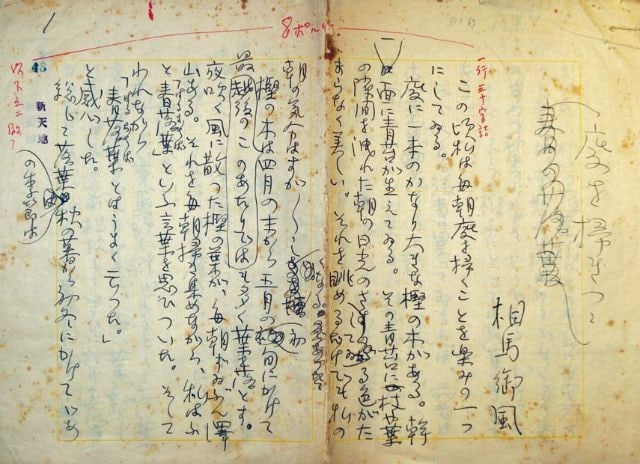 庭を掃きつゝ
春の落葉
相馬御風
一行三十字詰
この頃私は毎朝庭を掃くことを楽みの一つ
にしてゐる。
庭に一本のかなり大きな樫の木がある。幹
一面に青苔が生えてゐる。その青苔に枝葉
の隙間を洩れた朝の日光のさしてゐる色がた
まらなく美しい。それを眺めるだけでも私の
朝の気分はすが〱しくなる。
樫の木は四月の末から五月の初旬にかけて
最
越後のこのあたりでは
もよく葉を落とす。
夜吹く風に散つた樫の葉が、毎朝ずゐぶん沢
山ある。それを毎朝掃き集めながら、私はふ
と「春の落葉」といふ言葉を思ひついた。そして
われながら
「春の落葉とはうまく云つた。」
と感心した。
総じて落葉は秋の暮から初冬にかけて
の季節
8ポ
1
46
新天地
以下